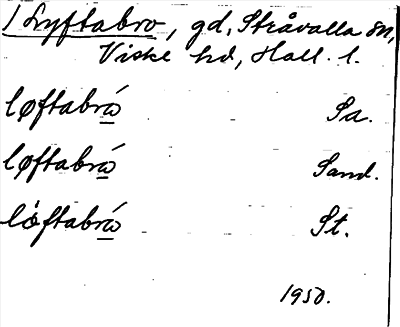 / Lyftabro, gd, Stråvalla sn,
Viske hd, Hall. l.
løftabrώ Sa.
løftabrώ Sand.
lȯftabrώ St.
1950.